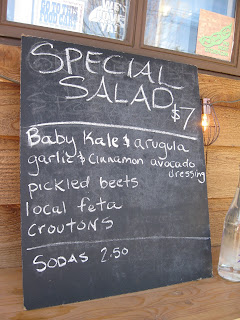 SPECIAL
SALAD
$7
Baby Kale & arugula
garlic & cinnamon avocado
dressing
pickled beets
local feta
croutons
SODAS 2.50